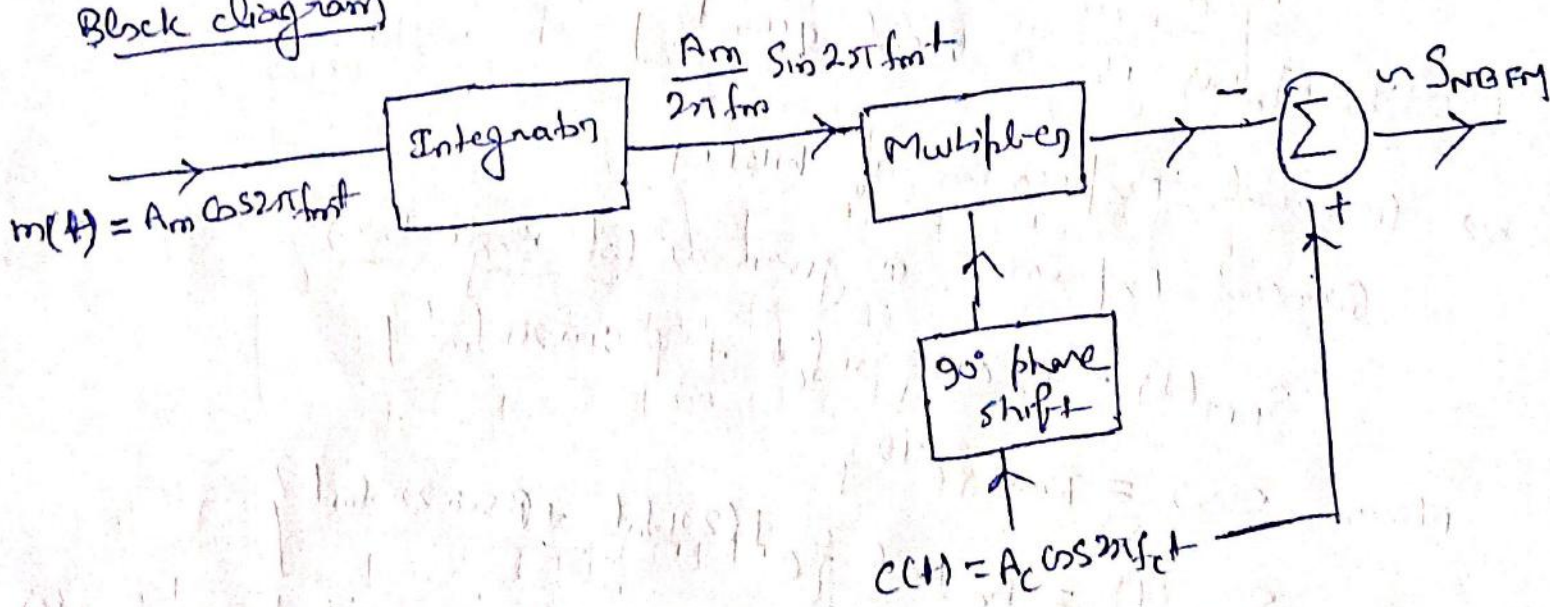 Block diagram
m(t) = Am Cos2πfmt
Integrator
Am/2πfm Sin2πfmt
Multiplier
-
Σ
S NBFM
+
90° phase
shift
c(t) = Ac cos2πfct